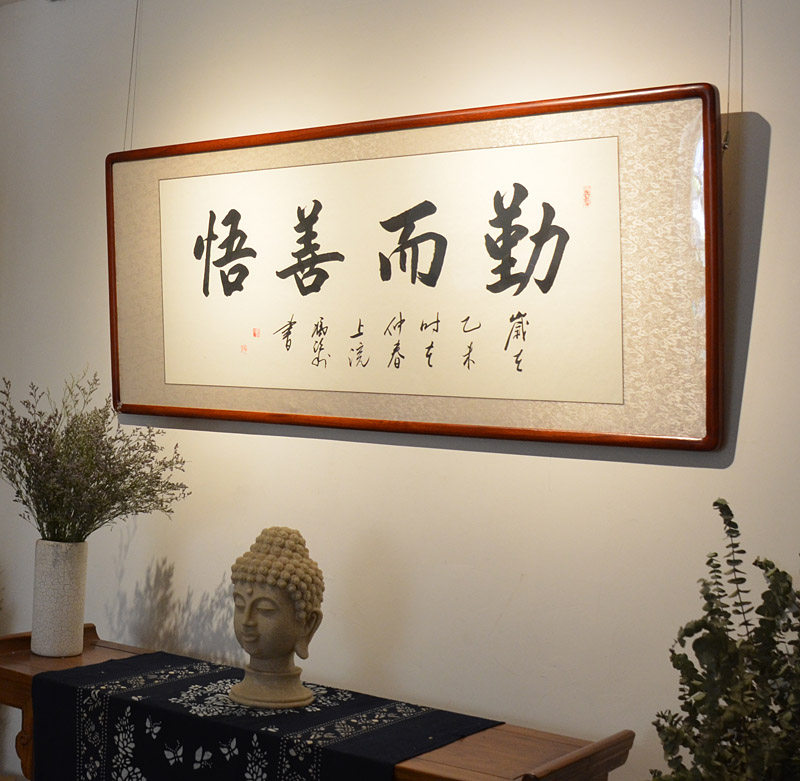 勤而善悟
歲在
乙未
时在
仲春
上浣
書